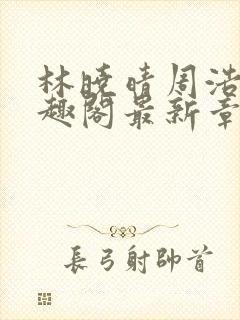 林晓晴周浩
趣阁最新章
長弓射帥首